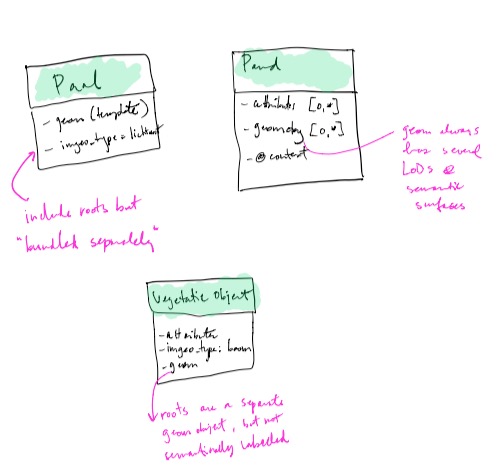 Paal
- geom (template)
- imgeo_type = lichtmast
include roots but
"bundled separately"
Pand
- attributes [0,*]
- geometry [0,*]
- @context
geom always
has several
LoDs &
semantic
surfaces
Vegetatie Object
- attributes
- imgeo_type: boom
- geom
roots are a separate
geom object, but not
semantically labelled